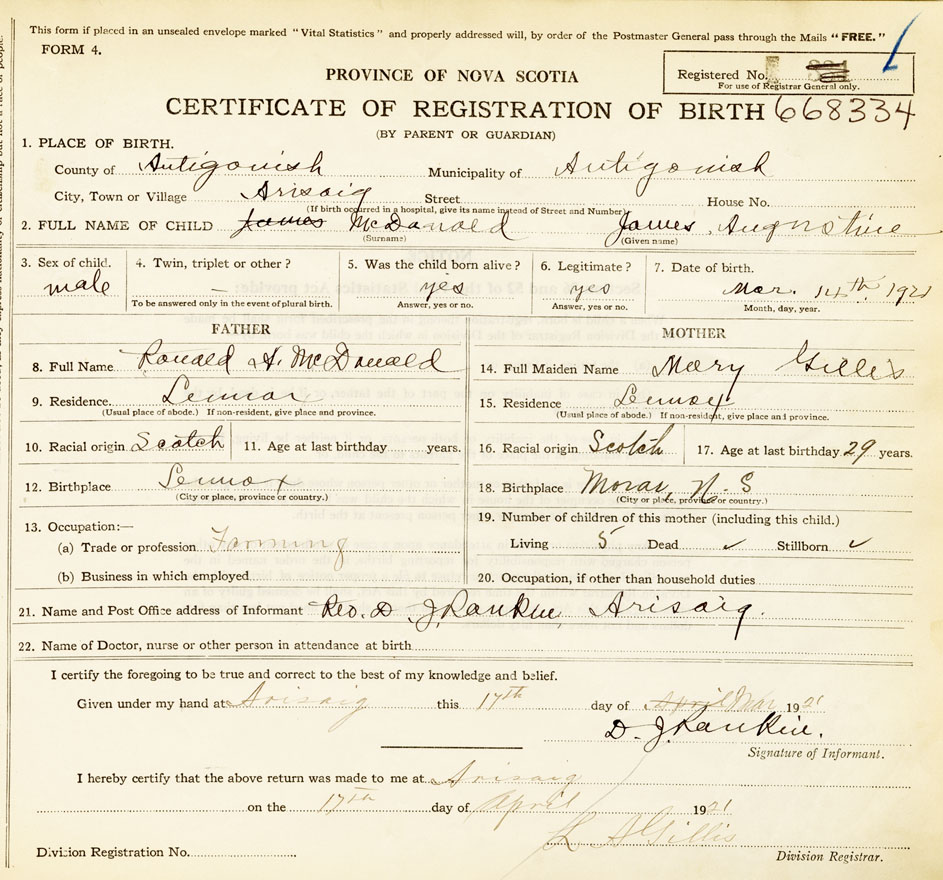 This form if placed in an unsealed envelope marked "Vital Statistics" and properly addressed will, by order of the Postmaster General pass through the Mails "FREE."
FORM 4.
Registered No.
For use of Registrar General only.
PROVINCE OF NOVA SCOTIA
CERTIFICATE OF REGISTRATION OF BIRTH 668334
(BY PARENT OR GUARDIAN)
1. PLACE OF BIRTH.
County of Antigonish Municipality of Antigonish
City, Town or Village Arisaig Street House No.
(If birth occurred in a hospital, give its name instead of Street and Number)
2. FULL NAME OF CHILD James McDonald James Augustine
(Surname) (Given name)
3. Sex of child. 4. Twin, triplet or other? 5. Was the child born alive? 6. Legitimate? 7. Date of birth.
male — yes yes Mar. 14th, 1921
To be answered only in the event of plural birth. Answer, yes or no. Answer, yes or no. Month, day, year.
FATHER MOTHER
8. Full Name Ronald A. McDonald 14. Full Maiden Name Mary Gillis
9. Residence Lennox 15. Residence Lennox
(Usual place of abode.) If non-resident, give place and province. (Usual place of abode.) If non-resident, give place and province.
10. Racial origin Scotch 11. Age at last birthday years. 16. Racial origin Scotch 17. Age at last birthday 29 years.
12. Birthplace Lennox 18. Birthplace Morar, N. S
(City or place, province or country.) (City or place, province or country.)
13. Occupation:— 19. Number of children of this mother (including this child.)
(a) Trade or profession Farming Living 5 Dead ✓ Stillborn ✓
(b) Business in which employed 20. Occupation, if other than household duties
21. Name and Post Office address of Informant Rev. D. J. Rankin, Arisaig.
22. Name of Doctor, nurse or other person in attendance at birth
I certify the foregoing to be true and correct to the best of my knowledge and belief.
Given under my hand at Arisaig this 17th day of April Mar 1921
D. J. Rankin.
Signature of Informant.
I hereby certify that the above return was made to me at Arisaig
on the 17th day of April 1921
L A Gillis
Division Registration No. Division Registrar.